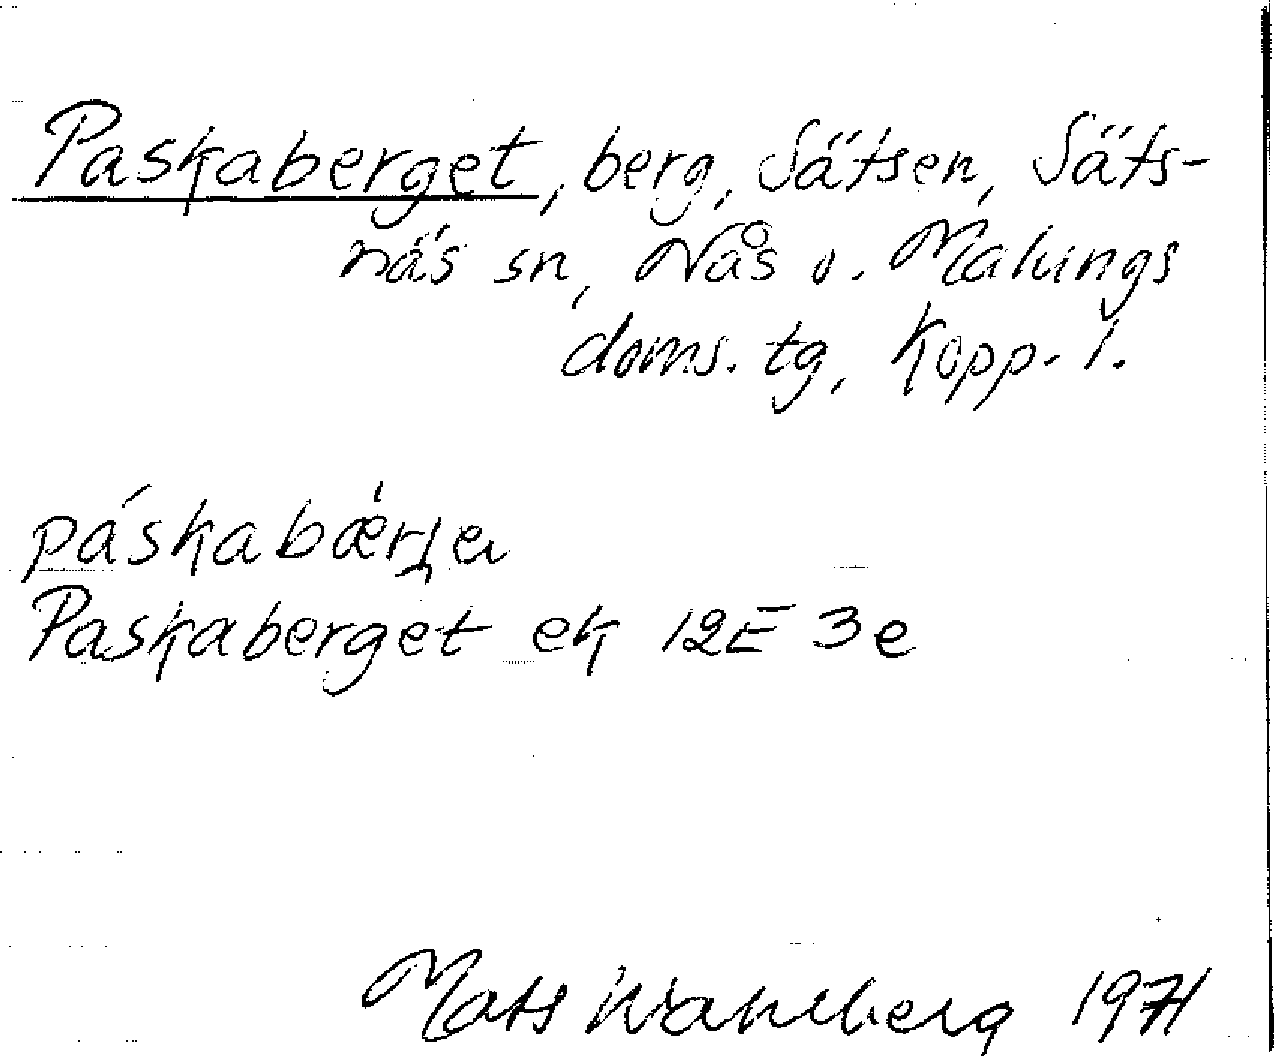 Paskaberget, berg, Sätsen, Säts-
näs sn, Nås o. Malungs
doms. tg, Kopp. l.
páskabæ̀rjeɩ
Paskaberget ek 12E 3e
Mats Wahlberg 1971